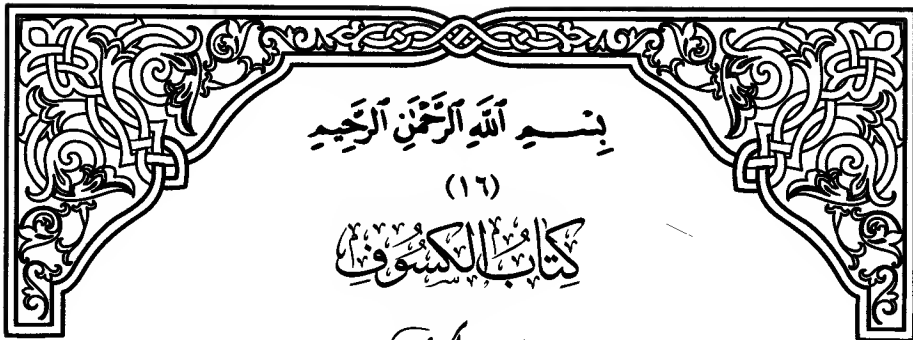 بِسْمِ ٱللَّهِ ٱلرَّحْمَٰنِ ٱلرَّحِيمِ
(١٦)
كِتَابُ الكُسُوفِ